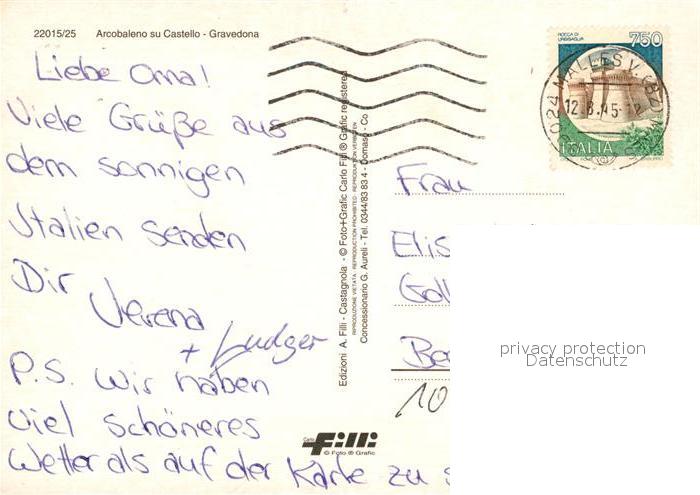 22015/25 Arcobaleno su Castello - Gravedona
Liebe Oma!
Viele Grüße aus
dem sonnigen
Italien senden
Dir Verena
+ Ludger
P.S. Wir haben
viel schöneres
Wetter als auf der Karte zu s
Edizioni A. Filli - Castagnola - © Foto+Grafic Carlo Filli ® Grafic registered
RIPRODUZIONE VIETATA · REPRODUCTION PROHIBITED · REPRODUKTION VERBOTEN
Concessionario G. Aureli - Tel. 0344/83 83 4 - Domaso - Co
Carlo Filli
© Foto ® Grafic
ROCCA DI
URBISAGLIA
750
ITALIA
MALLES V. (BZ)
Frau
Elis
Gol
Be
10
privacy protection
Datenschutz